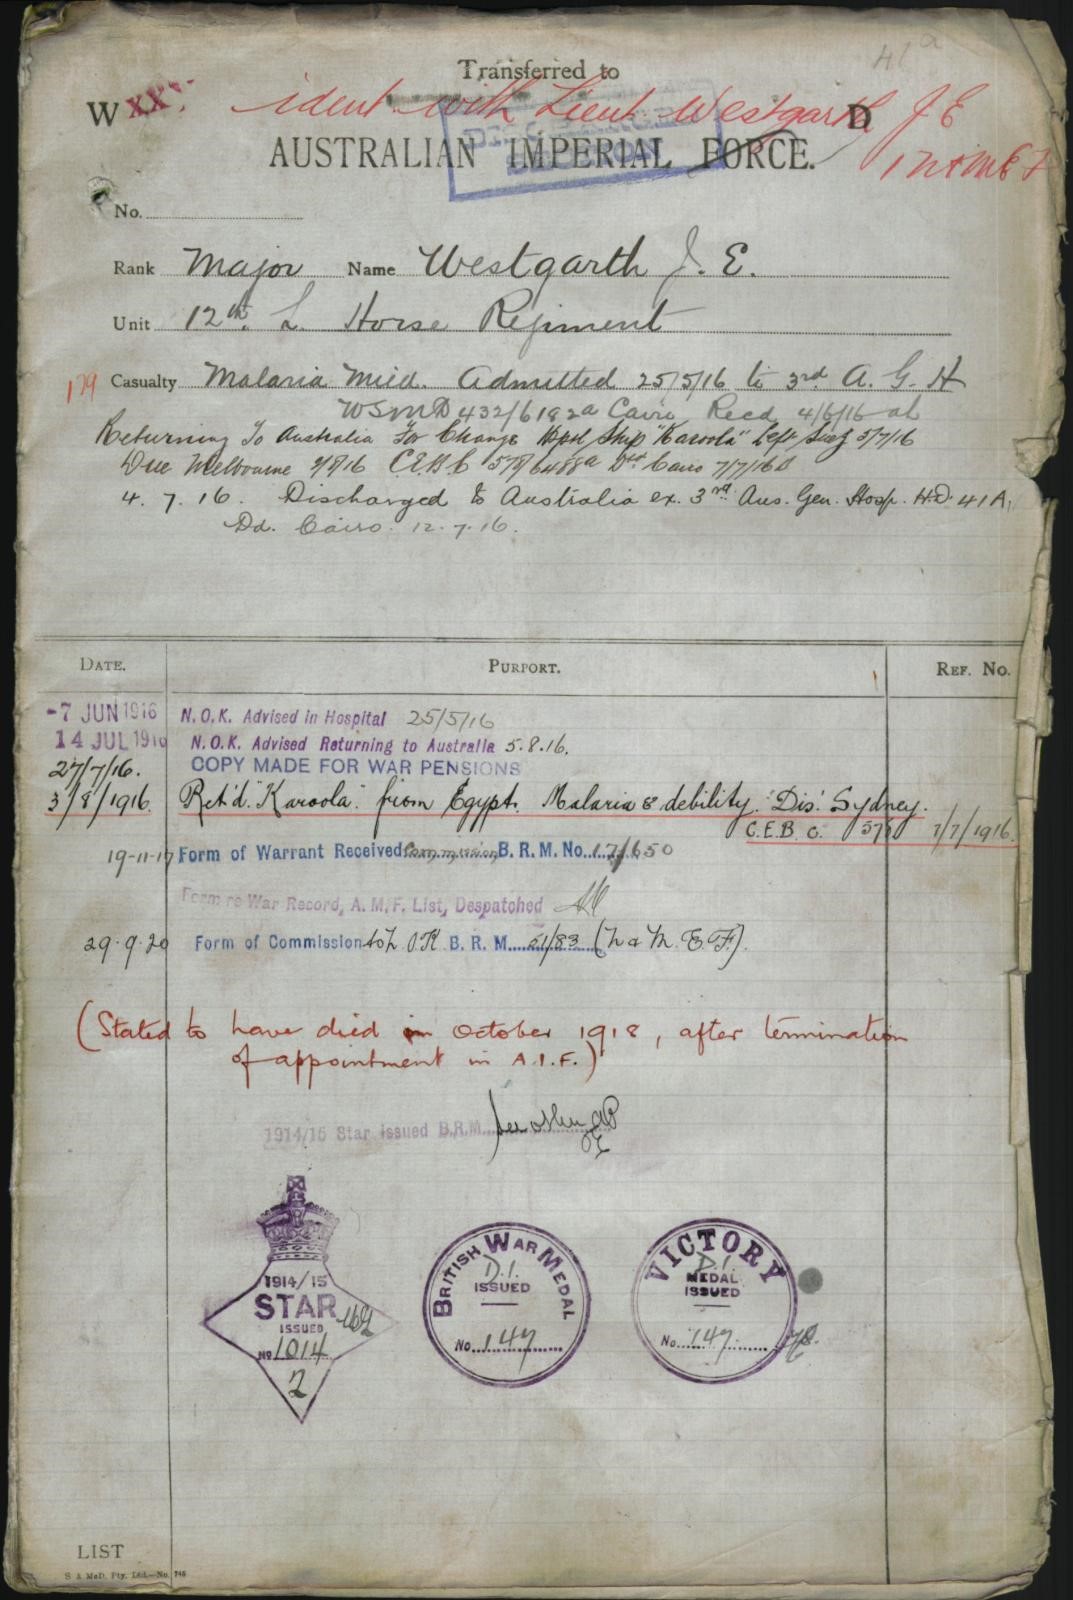 41a
Transferred to
W XX ident with Lieut Westgarth D J E
AUSTRALIAN IMPERIAL FORCE.
1 N & M E F
No.
Rank Major Name Westgarth J. E.
Unit 12th. L. Horse Regiment
179 Casualty Malaria Mild. Admitted 25/5/16 to 3rd A. G. H
WSMD 432/6182a Cairo Recd 4/6/16 al
Returning To Australia For Change Hptl Ship "Karoola" Left Suez 5/7/16
Due Melbourne 5/8/16 C.E.B.C 578/6488a Dtd Cairo 7/7/16
4. 7. 16. Discharged to Australia ex. 3rd Aus. Gen. Hosp. H.D. 41A,
Dd. Cairo. 12.7.16.
DATE. PURPORT. REF. NO.
-7 JUN 1916 N.O.K. Advised in Hospital 25/5/16
14 JUL 1916 N.O.K. Advised Returning to Australia 5.8.16.
27/7/16. COPY MADE FOR WAR PENSIONS
3/8/1916. Ret'd. "Karoola" from Egypt. Malaria & debility. "Dis." Sydney.
C.E.B.C. 578 7/7/1916.
19-11-17 Form of Warrant Received Commission B. R. M. No. 17/650
Form re War Record, A. M. F. List, Despatched
29.9.20 Form of Commission to N.O.K B. R. M. 51/83 (N & M. E. F.)
(Stated to have died in October 1918, after termination
of appointment in A.I.F.)
1914/15 Star Issued B.R.M.
1914/15
STAR
ISSUED
No 1014
2
BRITISH WAR MEDAL
D.1.
ISSUED
No. 147
VICTORY
D.1.
MEDAL
ISSUED
No. 147
LIST
S & McD. Pty. Ltd.—No. 746